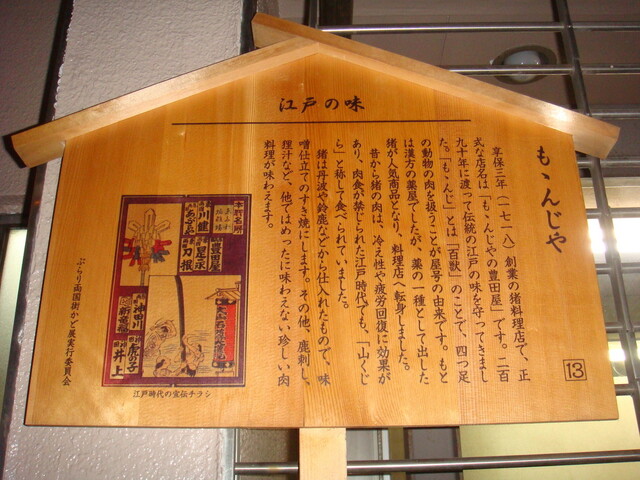 江戸の味
もゝんじや
享保三年(一七一八)創業の猪料理店で、正
式な店名は「もゝんじやの豊田屋」です。二百
九十年に渡って伝統の江戸の味を守ってきまし
た。「もゝんじ」とは「百獣」のことで、四つ足
の動物の肉を扱うことが屋号の由来です。もと
は漢方の薬屋でしたが、薬の一種として出した
猪が人気商品となり、料理店へ転身しました。
昔から猪の肉は、冷え性や疲労回復に効果が
あり、肉食が禁じられた江戸時代でも、「山くじ
ら」と称して食べられていました。
猪は丹波や鈴鹿などから仕入れたもので、味
噌仕立てのすき焼にします。その他、鹿刺し、
狸汁など、他ではめったに味わえない珍しい肉
料理が味わえます。
13
江戸時代の宣伝チラシ
ぶらり両国街かど展実行委員会
豊田屋
川健
神田川
虎の子
井上